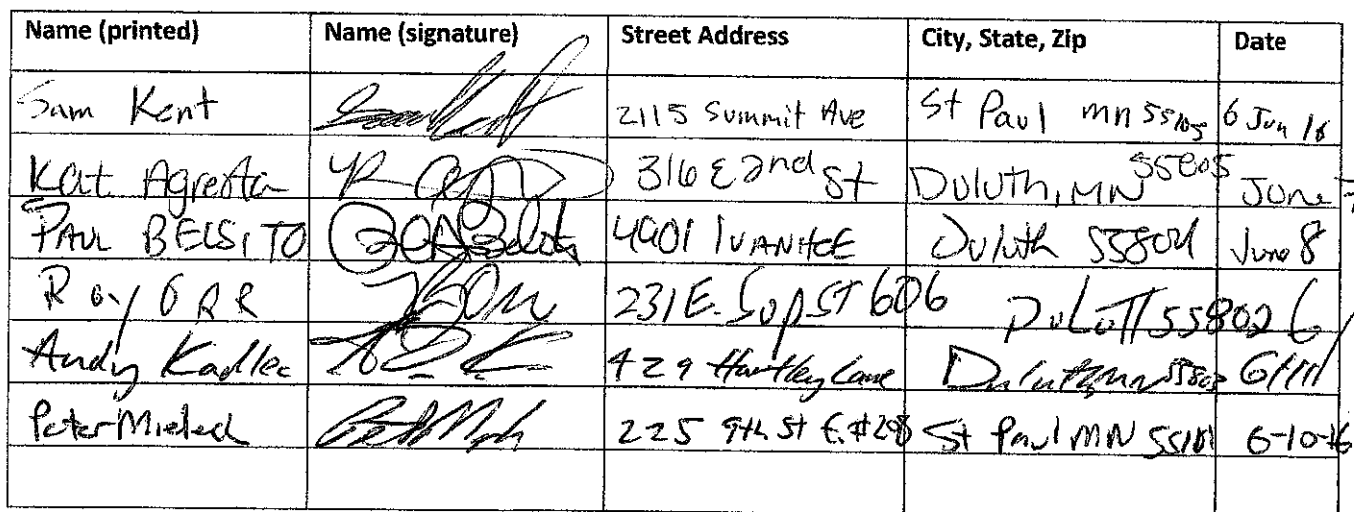 Name (printed) Name (signature) Street Address City, State, Zip Date
Sam Kent 2115 Summit Ave St Paul MN 55105 6 Jun 16
Kat Agresta 316 E 2nd St Duluth, MN 55805 June 7
PAUL BELSITO 4901 IVANHOE Duluth 55804 June 8
Roy ORR 231 E. Sup ST 606 Duluth 55802 6/
Andy Kadlec 429 Hartley Lane Duluth MN 55803 6/11/
Peter 225 9th St E. #208 St Paul MN 55101 6-10-16